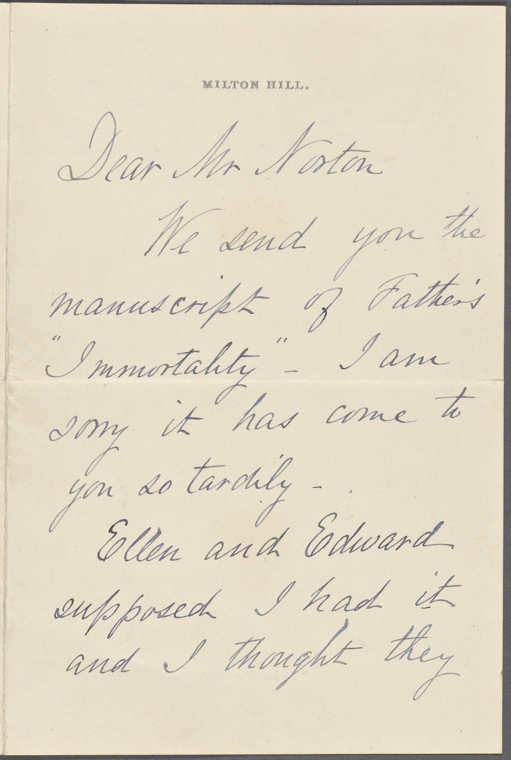 MILTON HILL.
Dear Mr Norton
We send you the
manuscript of Father's
"Immortality" – I am
sorry it has come to
you so tardily –
Ellen and Edward
supposed I had it
and I thought they